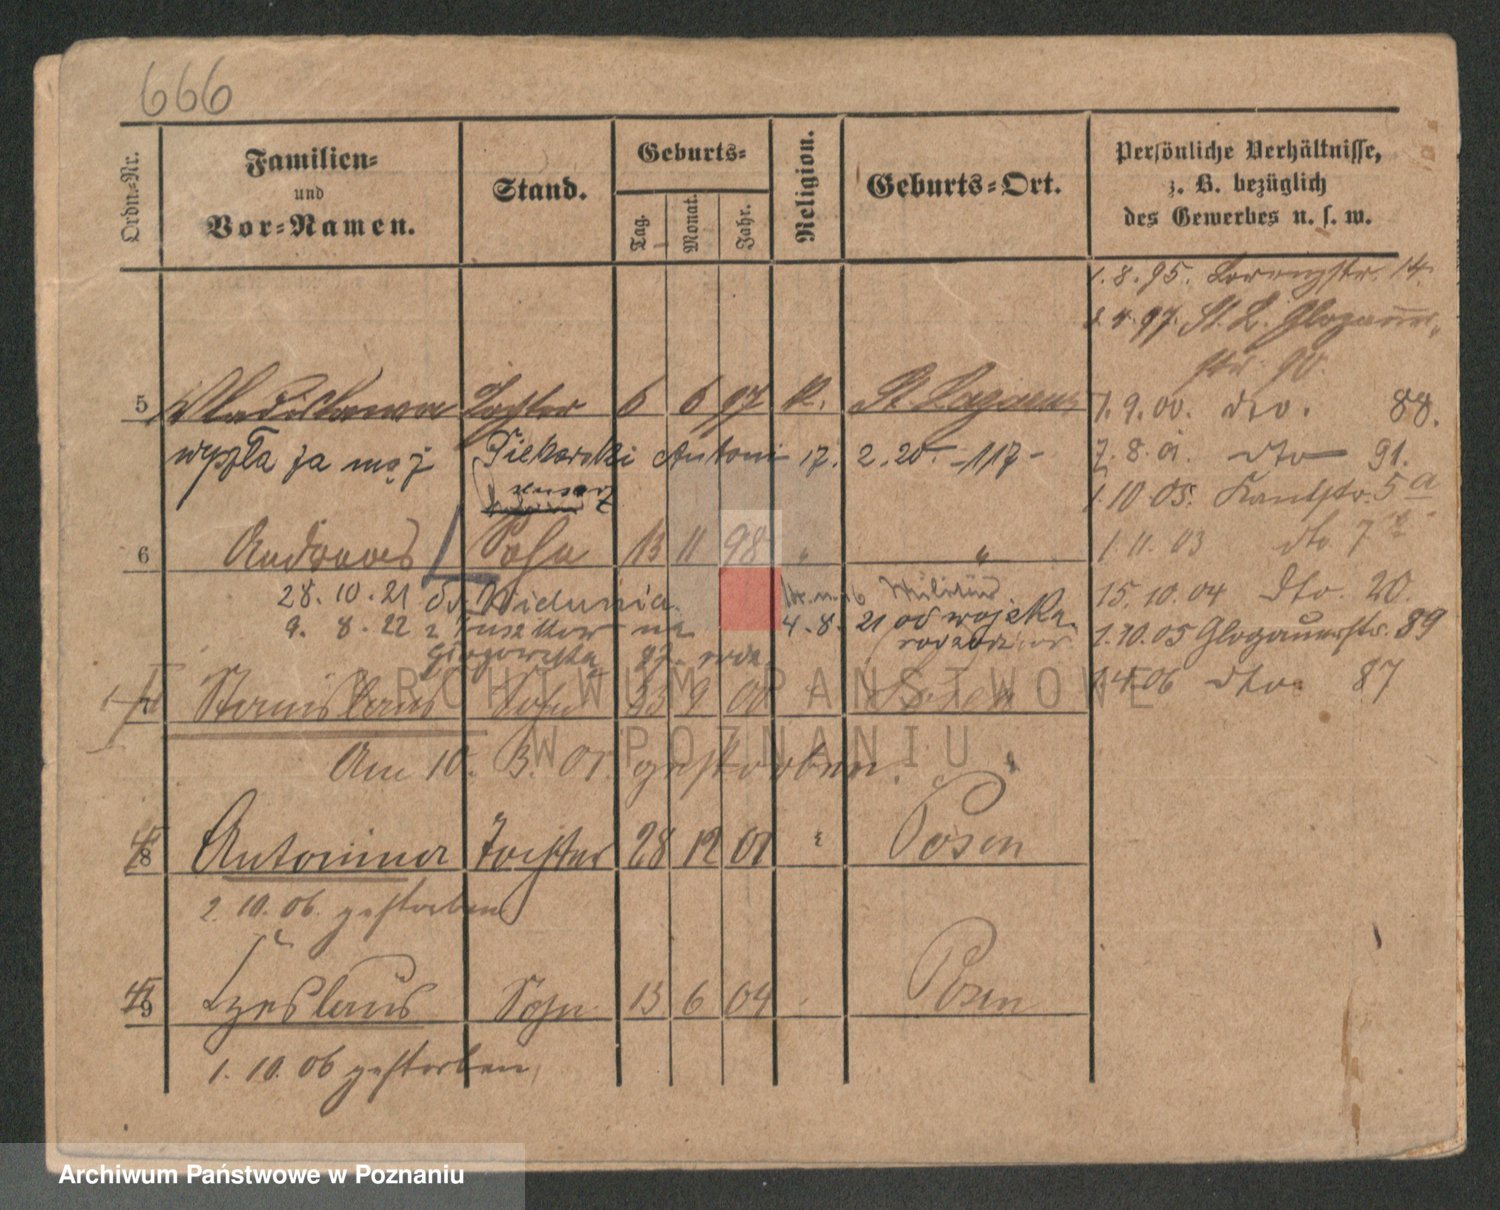 666
Ordn.-Nr.
Familien-
und
Vor-Namen.
Stand.
Geburts-
Tag.
Monat.
Jahr.
Religion.
Geburts-Ort.
Persönliche Verhältnisse,
z. B. bezüglich
des Gewerbes u. s. w.
1.8.95. Lorenzstr. 14.
4.97. St. L. Glogauer
str. 90.
5 Wladislawa Tochter 6 6 97 K. St. Lazarus
1.9.00. dto. 88.
wyszła za mąż Piekarski Antoni 17. 2. 20. -117-
7.8.01. dto 91.
1.10.05. Kantstr. 5a
6 Andreas Sohn 13 11 98 " "
1.11.03 dto 7
28.10.21 do Widunia
Militär
15.10.04 dto. 20.
9.8.22 z na
4.8.21 od wojska
1.10.05 Glogauerstr. 89
Glogowska 87
7 Stanislaus Sohn 9 00
1.4.06 dto. 87
Am 10. 3. 01. gestorben.
8 Antonina Tochter 28 12 01 " Posen
2.10.06. gestorben
9 Czeslaus Sohn 13 6 04 Posen
1.10.06 gestorben,
ARCHIWUM PAŃSTWOWE
W POZNANIU
Archiwum Państwowe w Poznaniu